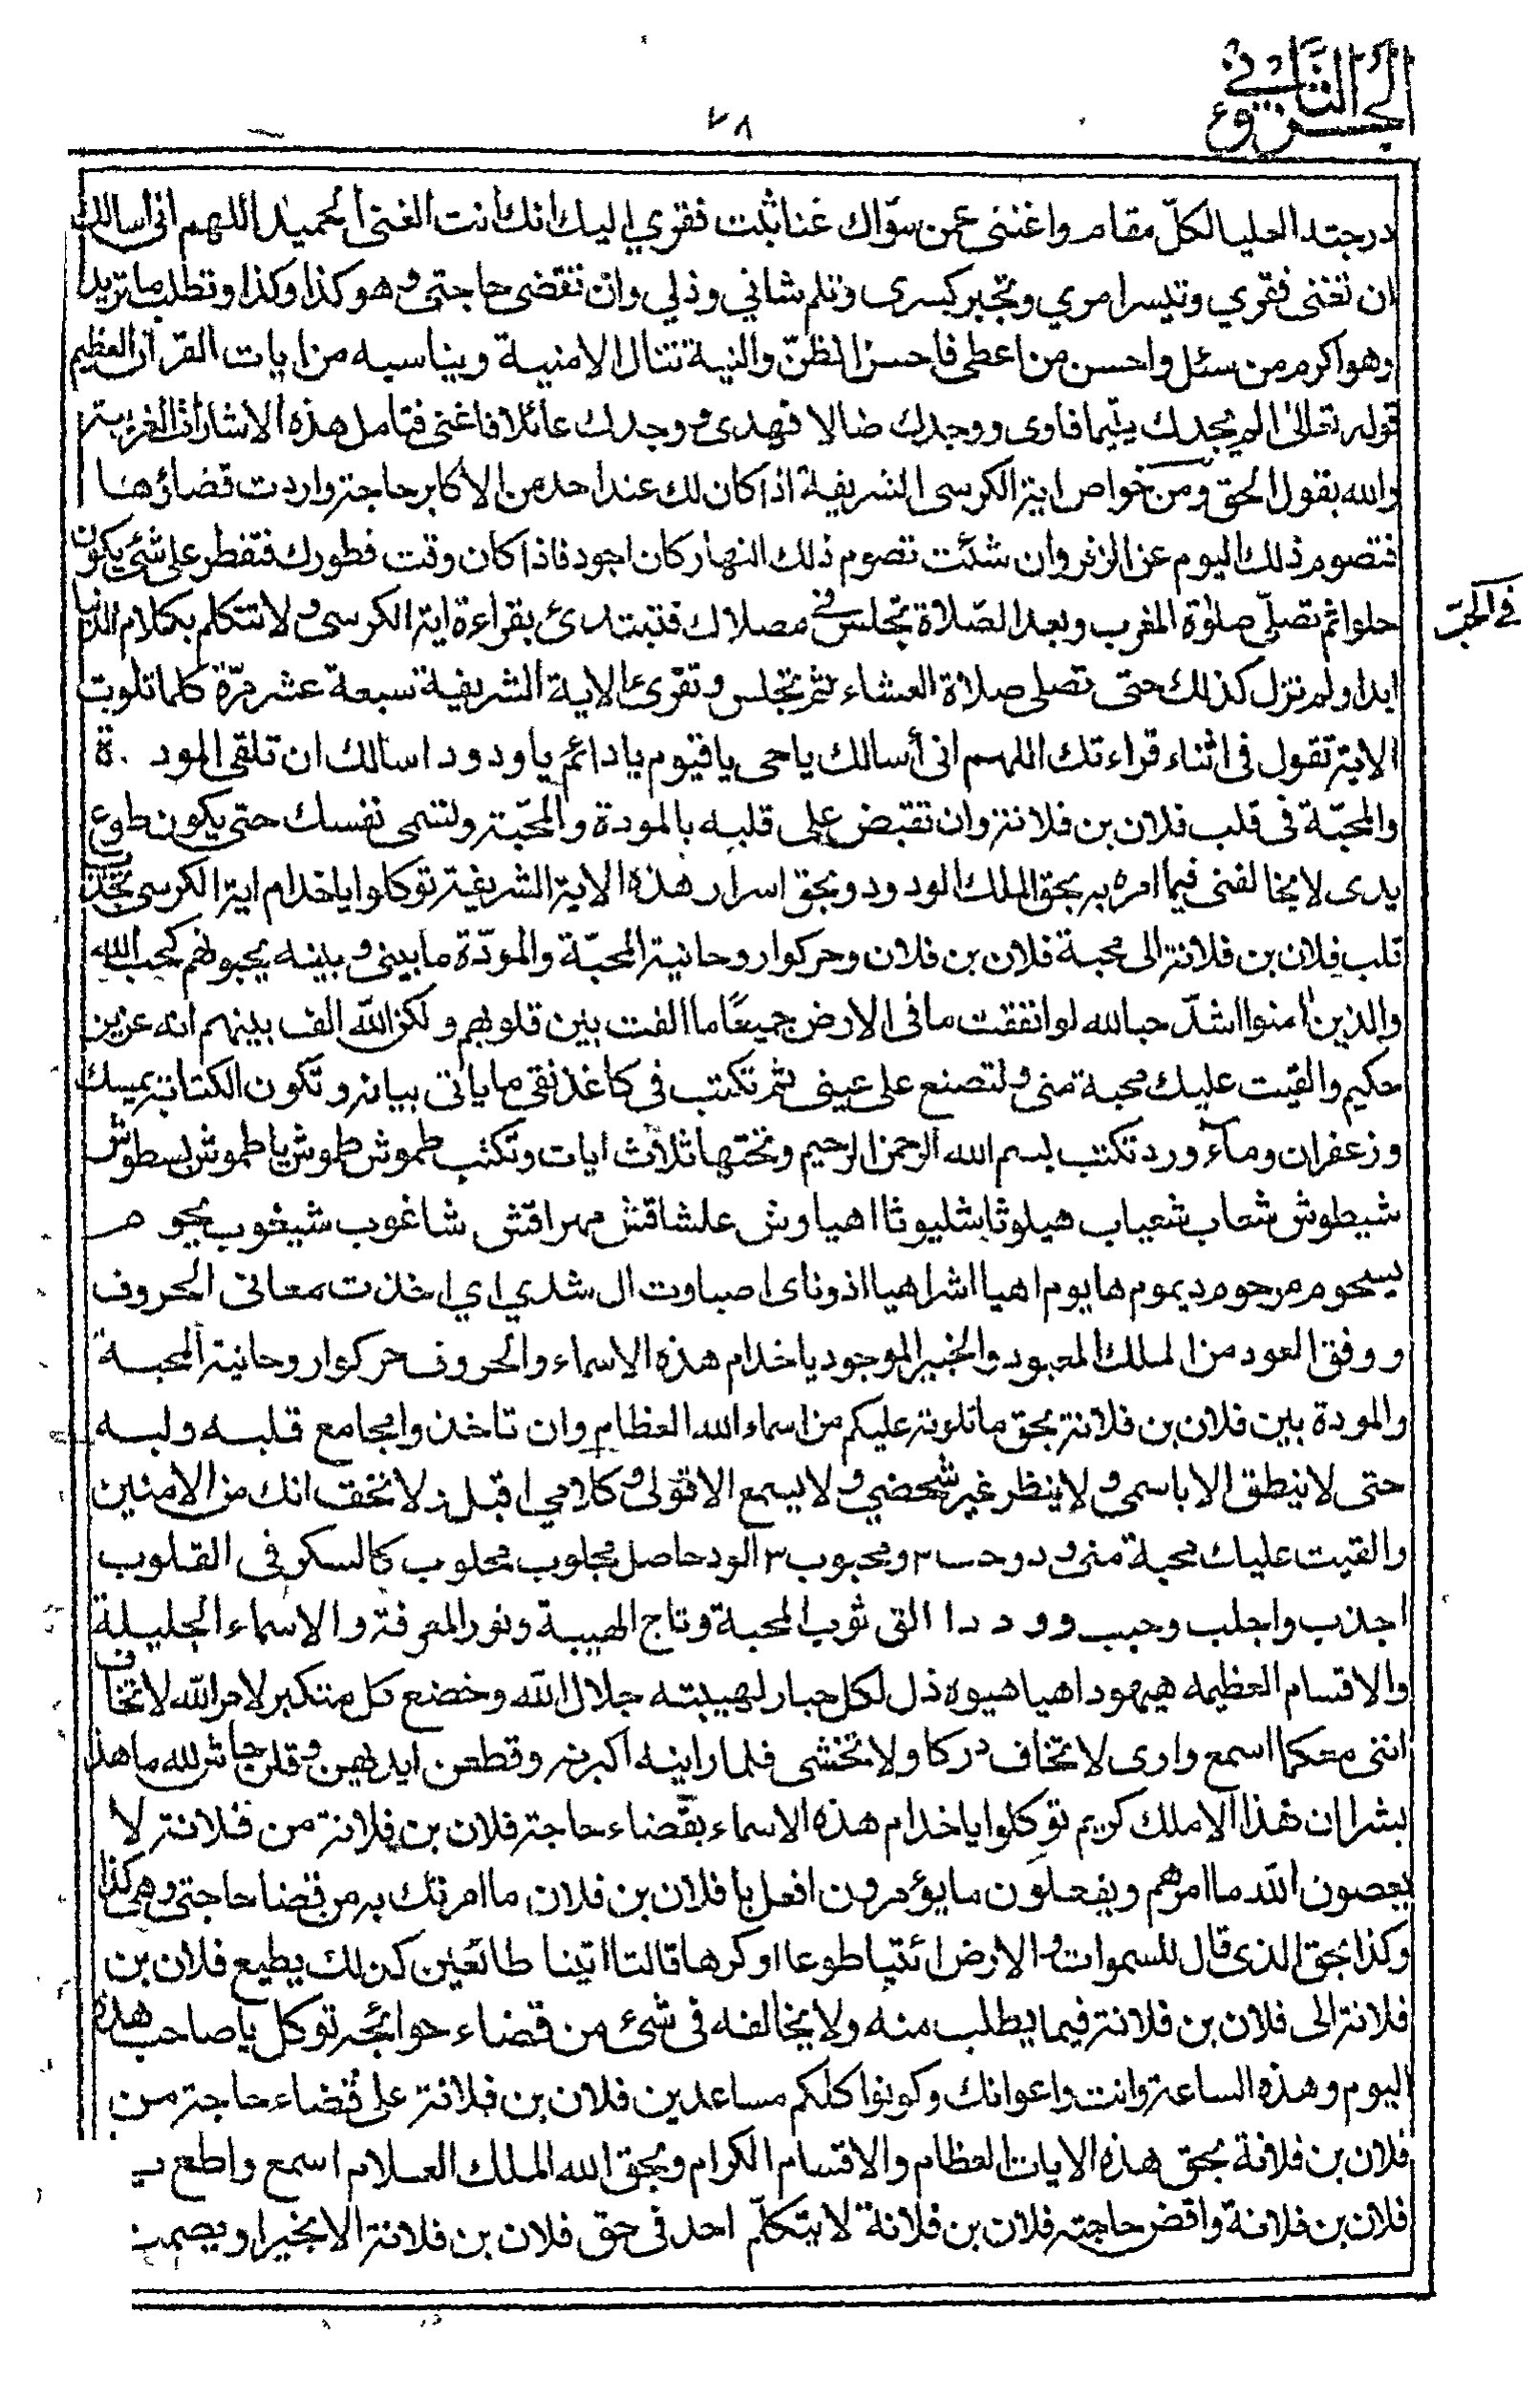 الجزؤ الثاني
٢٨
درجته العليا لكلّ مقام واغننى عمن سوّاك غنا ثبّت فقري اليك انك انت الغنى الحميد اللهم انى اسالك
ان تغنى فقري وتيسر امري وتجبر كسرى وتلم شاني وذلي وان تقضى حاجتى وهو كذا وكذا وتطلب ما تريد
وهو اكرم من سئل واحسن من اعطى فاحسن الظنّ والنية تنال الامنية ويناسبه من ايات القرآن العظيم
قوله تعالى الم يجدك يتيما فاوى ووجدك ضالا فهدى ووجدك عائلا فاغنى فتامل هذه الاشارات الغريبة
والله يقول الحق ومن خواص اية الكرسى الشريفة اذا كان لك عند احد من الاكابر حاجة واردت قضاؤها
فتصوم ذلك اليوم عن الزفر وان شئت تصوم ذلك النهار كان اجود فاذا كان وقت فطورك فتفطر على شئ يكون
حلوا ثم تصلّى صلوة المغرب وبعد الصّلاة تجلس في مصلاك فتبتدئ بقراءة اية الكرسى ولا تتكلم بكلام الدنيا
في الحبّ
ابدا ولم تزل كذلك حتى تصلى صلاة العشاء ثم تجلس وتقرئ الاية الشريفة تسبعة عشر مرّة كلما تلوت
الاية تقول فى اثناء قراءتك اللهم انى أسالك ياحى ياقيوم يادائم ياودود اسالك ان تلقى المودة
والمحبّة فى قلب فلان بن فلانة وان تقبض على قلبه بالمودة والمحبّة ولتسمى نفسك حتى يكون طوع
يدى لا يخالفنى فيما امره به بحق الملك الودود وبحق اسرار هذه الاية الشريفة توكلوا ياخدام اية الكرسى بجذب
قلب فلان بن فلانة الى محبة فلان بن فلان وحركوا روحانية المحبّة والمودّة ما بينى وبينه يحبونهم كحب الله
والذين امنوا اشدّ حبا لله لو انفقت ما فى الارض جميعًا ما الفت بين قلوبهم ولكن الله الف بينهم انه عزيز
حكيم والقيت عليك محبة منى ولتصنع على عينى ثم تكتب فى كاغد نقى ما ياتى بيانه وتكون الكتابة بمسك
وزعفران وماء ورد تكتب بسم الله الرحمن الرحيم وتحتها ثلاث ايات وتكتب طموش طموش ياطموش بسطوش
شيطوش شعاب شعياب هيلوثا شليوثا اهياوش علشاقش مهراقش شاغوب شيغوب يجوم
يسحوم مرحوم ديموم هايوم اهيا اشراهيا اذوناى اصباوت ال شدي اي اخذت معانى الحروف
ووفق العود من الملك المعبود والخبير الموجود ياخدام هذه الاسماء والحروف حركوا روحانية المحبة
والمودة بين فلان بن فلانة بحق ما تلوته عليكم من اسماء الله العظام وان تاخذوا بمجامع قلبه ولبه
حتى لا ينطق الا باسمى ولا ينظر غير شخصي ولا يسمع الا قولى وكلامي اقبل ولا تخف انك من الامنين
والقيت عليك محبة منى ودود ٣ ومحبوب ٣ الود حاصل مجلوب محلوب كالسكر فى القلوب
اجذب واجلب وحبب وودد ا القى ثوب المحبة وتاج الهيبة ونور المعرفة والاسماء الجليلة
والاقسام العظيمه هيهود اهيا هيوه ذل لكل جبار لهيبته جلال الله وخضع كل متكبر لامر الله لا تخاف
اننى معكما اسمع وارى لا تخاف دركا ولا تخشى فلما راينه اكبرنه وقطعن ايديهن وقلن حاش لله ما هذا
بشرا ان هذا الا ملك كريم توكلوا ياخدام هذه الاسماء بقضاء حاجة فلان بن فلانة من فلانة لا
يعصون الله ما امرهم ويفعلون ما يؤمرون افعل يا فلان بن فلان ما امرتك به من قضا حاجتى وهى كذا
وكذا بحق الذى قال للسموات والارض ائتيا طوعا او كرها قالتا اتينا طائعين كذلك يطيع فلان بن
فلانة الى فلان بن فلانة فيما يطلب منه ولا يخالفه فى شئ من قضاء حوائجه توكل ياصاحب هذه
اليوم وهذه الساعة وانت واعوانك وكونوا كلكم مساعدين فلان بن فلانة على قضاء حاجة من
فلان بن فلانة بحق هذه الايات العظام والاقسام الكرام وبحق الله الملك العلام اسمع واطع يـ
فلان بن فلانة واقض حاجته فلان بن فلانة لا يتكلّم احد فى حق فلان بن فلانة الا بخير او يصمت